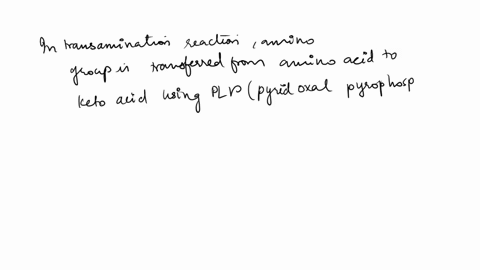 In transamination reaction, amino
group is transferred from amino acid to
keto acid using PLP (pyridoxal pyrophosp